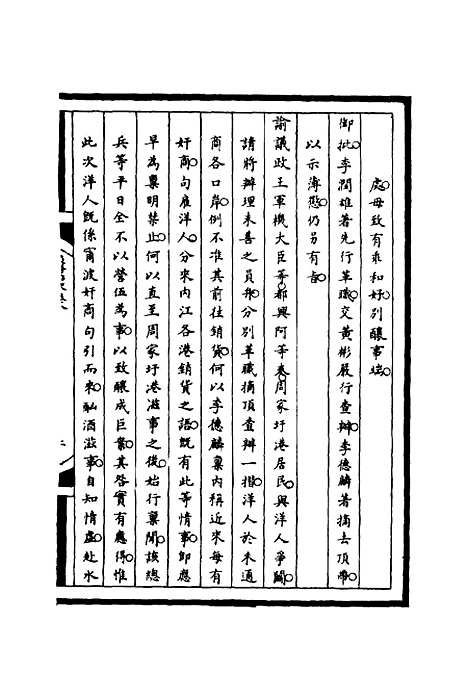 處毋致有乖和好別釀事端
御批李潤雄著先行革職交黃彬嚴行查辦李德麟著摘去頂帶
以示薄懲仍另有旨
諭議政王軍機大臣等都興阿等奏周家圩港居民與洋人爭鬬
請將辦理未善之員弁分別革職摘頂查辦一摺洋人於未通
商各口岸例不准其前往銷貨何以李德麟稟內稱近來每有
奸商句雇洋人分來內江各港銷貨之語既有此等情事即應
早為稟明禁止何以直至周家圩港滋事之後始行稟聞該總
兵等平日全不以營伍為事以致釀成巨案其咎實有應得惟
此次洋人既係甯波奸商句引而來酗酒滋事自知情虛赴水